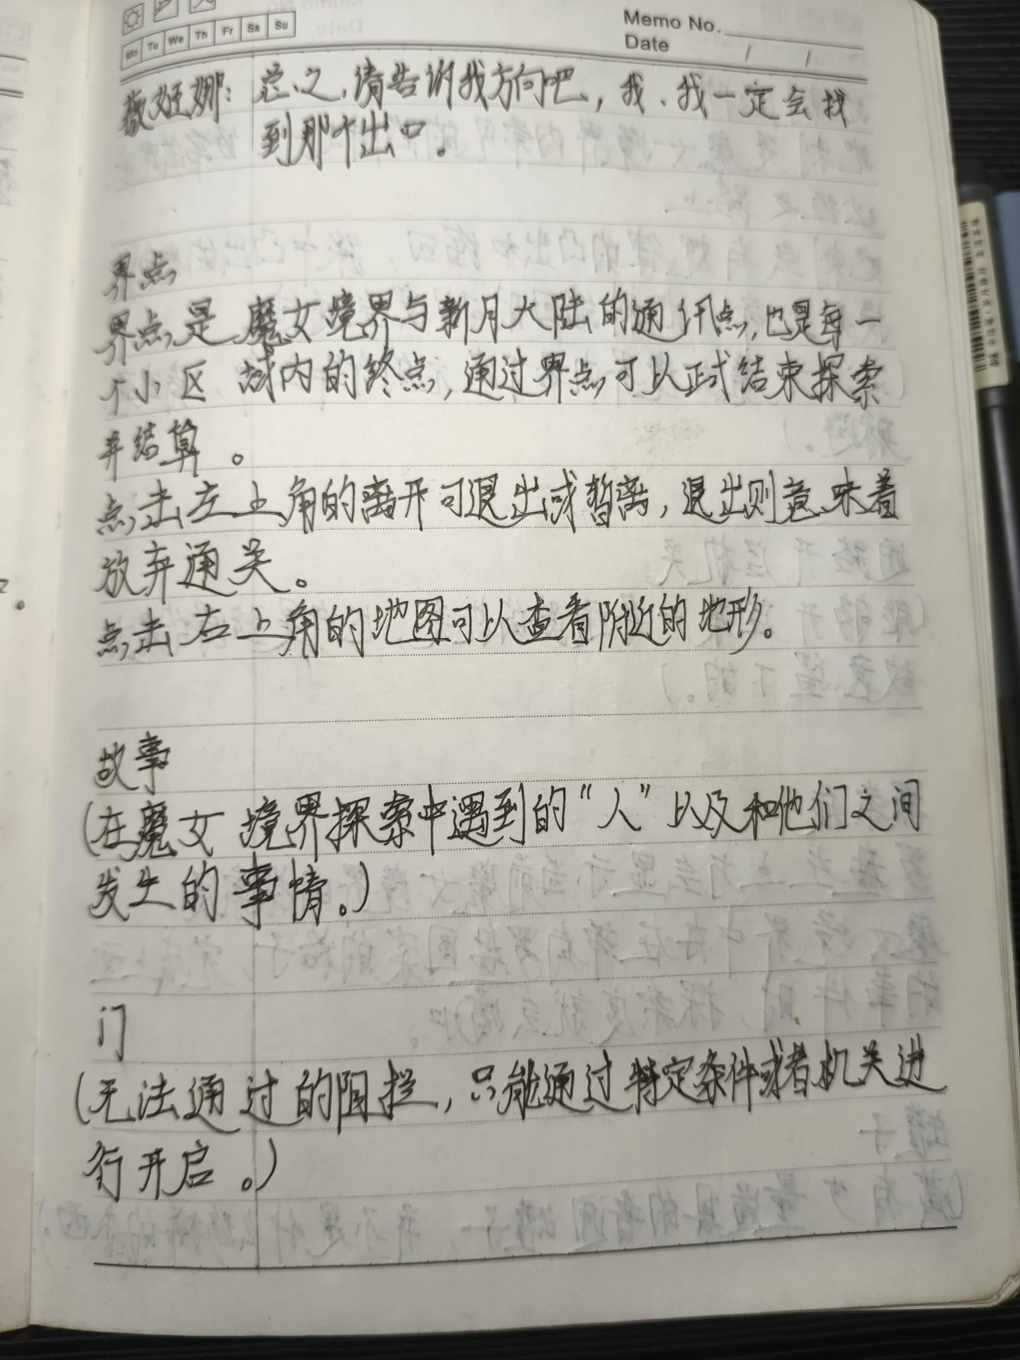 Memo No.
Mo Tu We Th Fr Sa Su
Date / /
总之,请告诉我方向吧,我、我一定会找
到那个出口。
界点
界点,是魔女境界与新月大陆的通讯点,也是每一
个小区域内的终点,通过界点可以正式结束探索
并结算。
点击左上角的离开可退出或暂离,退出则意味着
放弃通关。
点击右上角的地图可以查看附近的地形。
故事
(在魔女境界探索中遇到的“人”以及和他们之间
发生的事情。)
门
(无法通过的阻拦,只能通过特定条件或者机关进
行开启。)